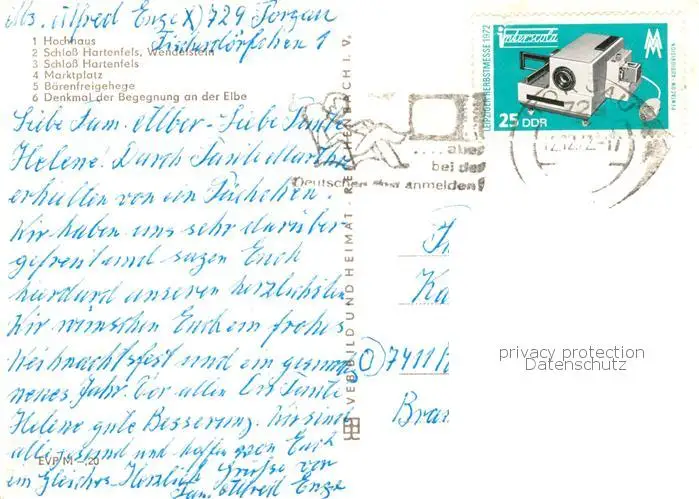 Abs. Alfred Enge X) 729 Torgau
Fischerdörfchen 1
1 Hochhaus
2 Schloß Hartenfels, Wendelstein
3 Schloß Hartenfels
4 Marktplatz
5 Bärenfreigehege
6 Denkmal der Begegnung an der Elbe
Liebe Fam. Alber - Liebe Tante
Helene! Durch Tante Martha
erhielten von ein Päckchen.
Wir haben uns sehr darüber
gefreut und sagen Euch
hierdurch unseren herzlichsten
Wir wünschen Euch ein frohes
Weihnachtsfest und ein gesundes
neues Jahr. Vor allen Dir Tante
Helene gute Besserung. Wir sind
alle gesund und hoffe von Euch
ein Gleiches. Herzliche Grüße von
Fam. Alfred Enge
EVP M -,20
VEB BILD UND HEIMAT REICHENBACH I. V.
LEIPZIGER HERBSTMESSE 1972
interscola
MM
PENTACON-AUDIOVISION
25 DDR
aber
bei der
Deutschen Post anmelden!
12.12.72-17
Ka
7411
Bra
privacy protection
Datenschutz